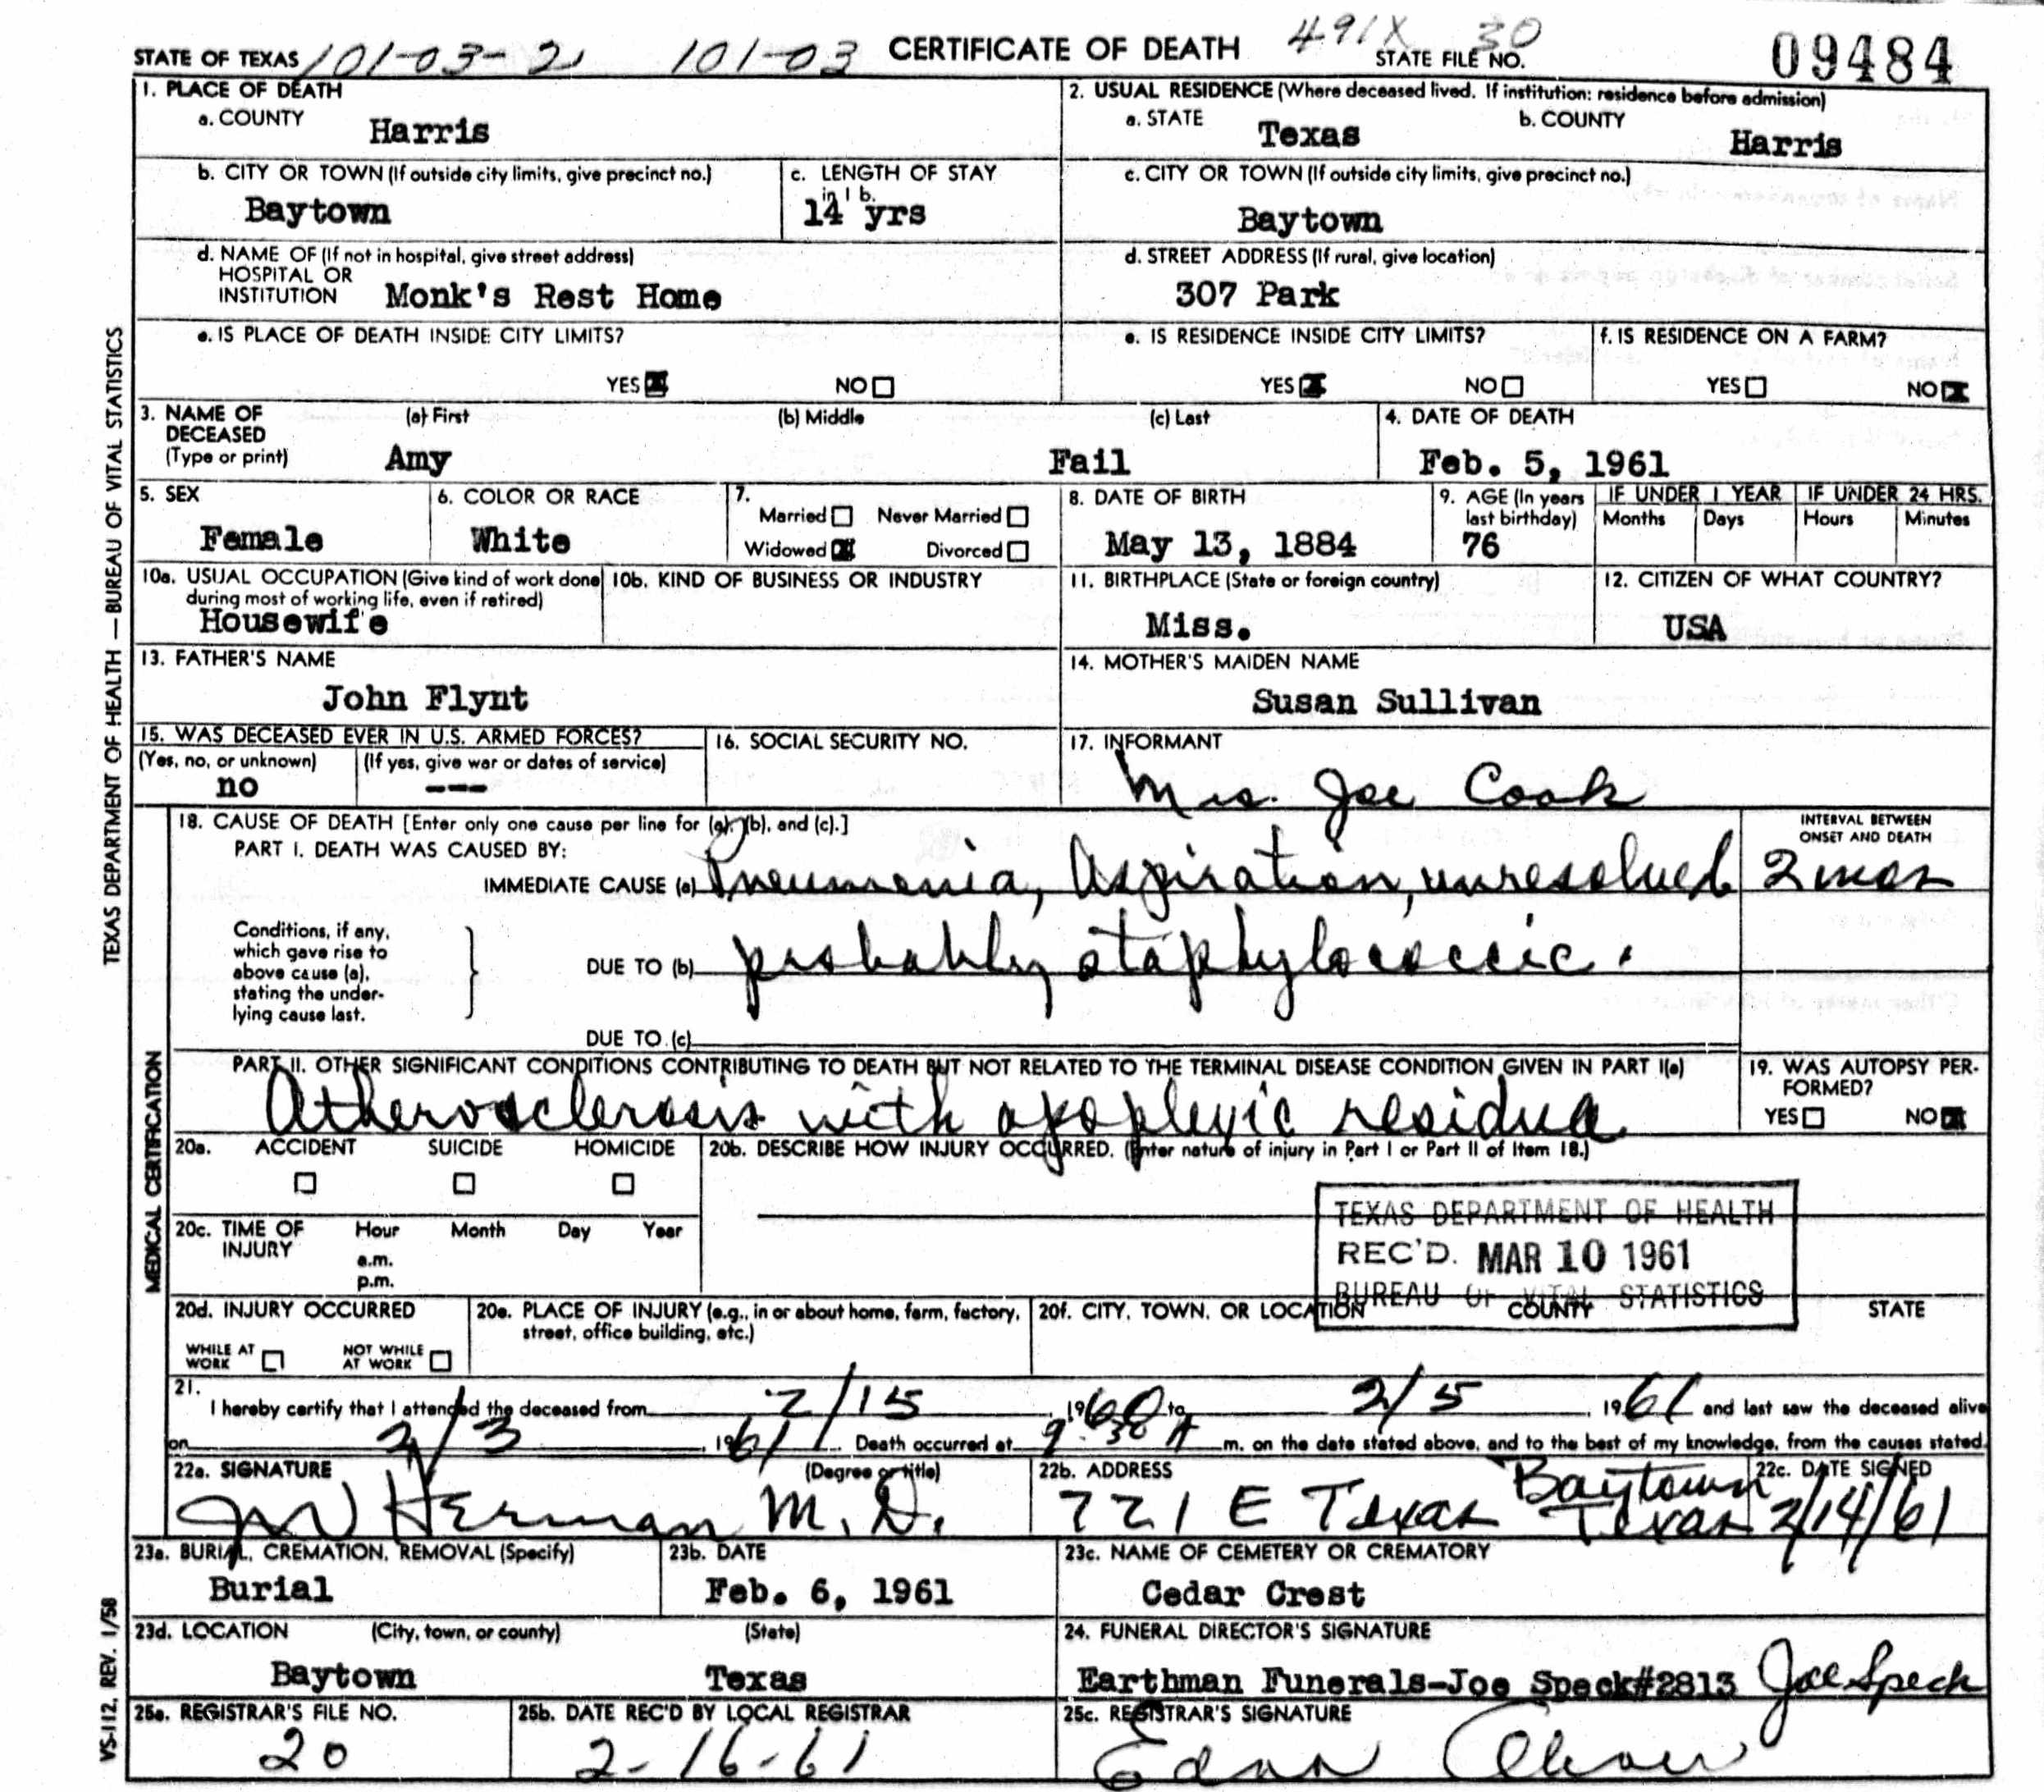 STATE OF TEXAS 101-03-2 101-03 CERTIFICATE OF DEATH 491X 30 STATE FILE NO. 09484
1. PLACE OF DEATH
a. COUNTY
Harris
2. USUAL RESIDENCE (Where deceased lived. If institution: residence before admission)
a. STATE b. COUNTY
Texas Harris
b. CITY OR TOWN (If outside city limits, give precinct no.)
Baytown
c. LENGTH OF STAY
in 1 b.
14 yrs
c. CITY OR TOWN (If outside city limits, give precinct no.)
Baytown
d. NAME OF (If not in hospital, give street address)
HOSPITAL OR
INSTITUTION Monk's Rest Home
d. STREET ADDRESS (If rural, give location)
307 Park
e. IS PLACE OF DEATH INSIDE CITY LIMITS?
YES NO
e. IS RESIDENCE INSIDE CITY LIMITS?
YES NO
f. IS RESIDENCE ON A FARM?
YES NO
3. NAME OF
DECEASED
(Type or print)
(a) First (b) Middle (c) Last
Amy Fail
4. DATE OF DEATH
Feb. 5, 1961
5. SEX
Female
6. COLOR OR RACE
White
7.
Married Never Married
Widowed Divorced
8. DATE OF BIRTH
May 13, 1884
9. AGE (In years
last birthday)
76
IF UNDER 1 YEAR
Months Days
IF UNDER 24 HRS.
Hours Minutes
10a. USUAL OCCUPATION (Give kind of work done
during most of working life, even if retired)
Housewife
10b. KIND OF BUSINESS OR INDUSTRY
11. BIRTHPLACE (State or foreign country)
Miss.
12. CITIZEN OF WHAT COUNTRY?
USA
13. FATHER'S NAME
John Flynt
14. MOTHER'S MAIDEN NAME
Susan Sullivan
15. WAS DECEASED EVER IN U.S. ARMED FORCES?
(Yes, no, or unknown) (If yes, give war or dates of service)
no ---
16. SOCIAL SECURITY NO.
17. INFORMANT
Mrs. Joe Cook
18. CAUSE OF DEATH [Enter only one cause per line for (a), (b), and (c).]
PART I. DEATH WAS CAUSED BY:
IMMEDIATE CAUSE (a) Pneumonia, Aspiration, unresolved
INTERVAL BETWEEN
ONSET AND DEATH
2 mos
Conditions, if any,
which gave rise to
above cause (a),
stating the under-
lying cause last.
DUE TO (b) probably staphylococcic.
DUE TO (c)
PART II. OTHER SIGNIFICANT CONDITIONS CONTRIBUTING TO DEATH BUT NOT RELATED TO THE TERMINAL DISEASE CONDITION GIVEN IN PART I(a)
Atherosclerosis with apoplexic residua
19. WAS AUTOPSY PER-
FORMED?
YES NO
20a. ACCIDENT SUICIDE HOMICIDE
20b. DESCRIBE HOW INJURY OCCURRED. (Enter nature of injury in Part I or Part II of Item 18.)
20c. TIME OF
INJURY
Hour Month Day Year
a.m.
p.m.
TEXAS DEPARTMENT OF HEALTH
REC'D. MAR 10 1961
BUREAU OF VITAL STATISTICS
20d. INJURY OCCURRED
WHILE AT
WORK
NOT WHILE
AT WORK
20e. PLACE OF INJURY (e.g., in or about home, farm, factory,
street, office building, etc.)
20f. CITY, TOWN, OR LOCATION COUNTY STATE
21.
I hereby certify that I attended the deceased from 2/15, 1960 to 2/5, 1961 and last saw the deceased alive
on 2/3, 1961. Death occurred at 9:30 A m. on the date stated above, and to the best of my knowledge, from the causes stated.
22a. SIGNATURE (Degree or title)
Herman M.D.
22b. ADDRESS
721 E Texas Baytown Texas
22c. DATE SIGNED
2/14/61
23a. BURIAL, CREMATION, REMOVAL (Specify)
Burial
23b. DATE
Feb. 6, 1961
23c. NAME OF CEMETERY OR CREMATORY
Cedar Crest
23d. LOCATION (City, town, or county) (State)
Baytown Texas
24. FUNERAL DIRECTOR'S SIGNATURE
Earthman Funerals-Joe Speck#2813 Joe Speck
25a. REGISTRAR'S FILE NO.
20
25b. DATE REC'D BY LOCAL REGISTRAR
2-16-61
25c. REGISTRAR'S SIGNATURE
Edna Oliver
TEXAS DEPARTMENT OF HEALTH — BUREAU OF VITAL STATISTICS
MEDICAL CERTIFICATION
VS-112. REV. 1/58